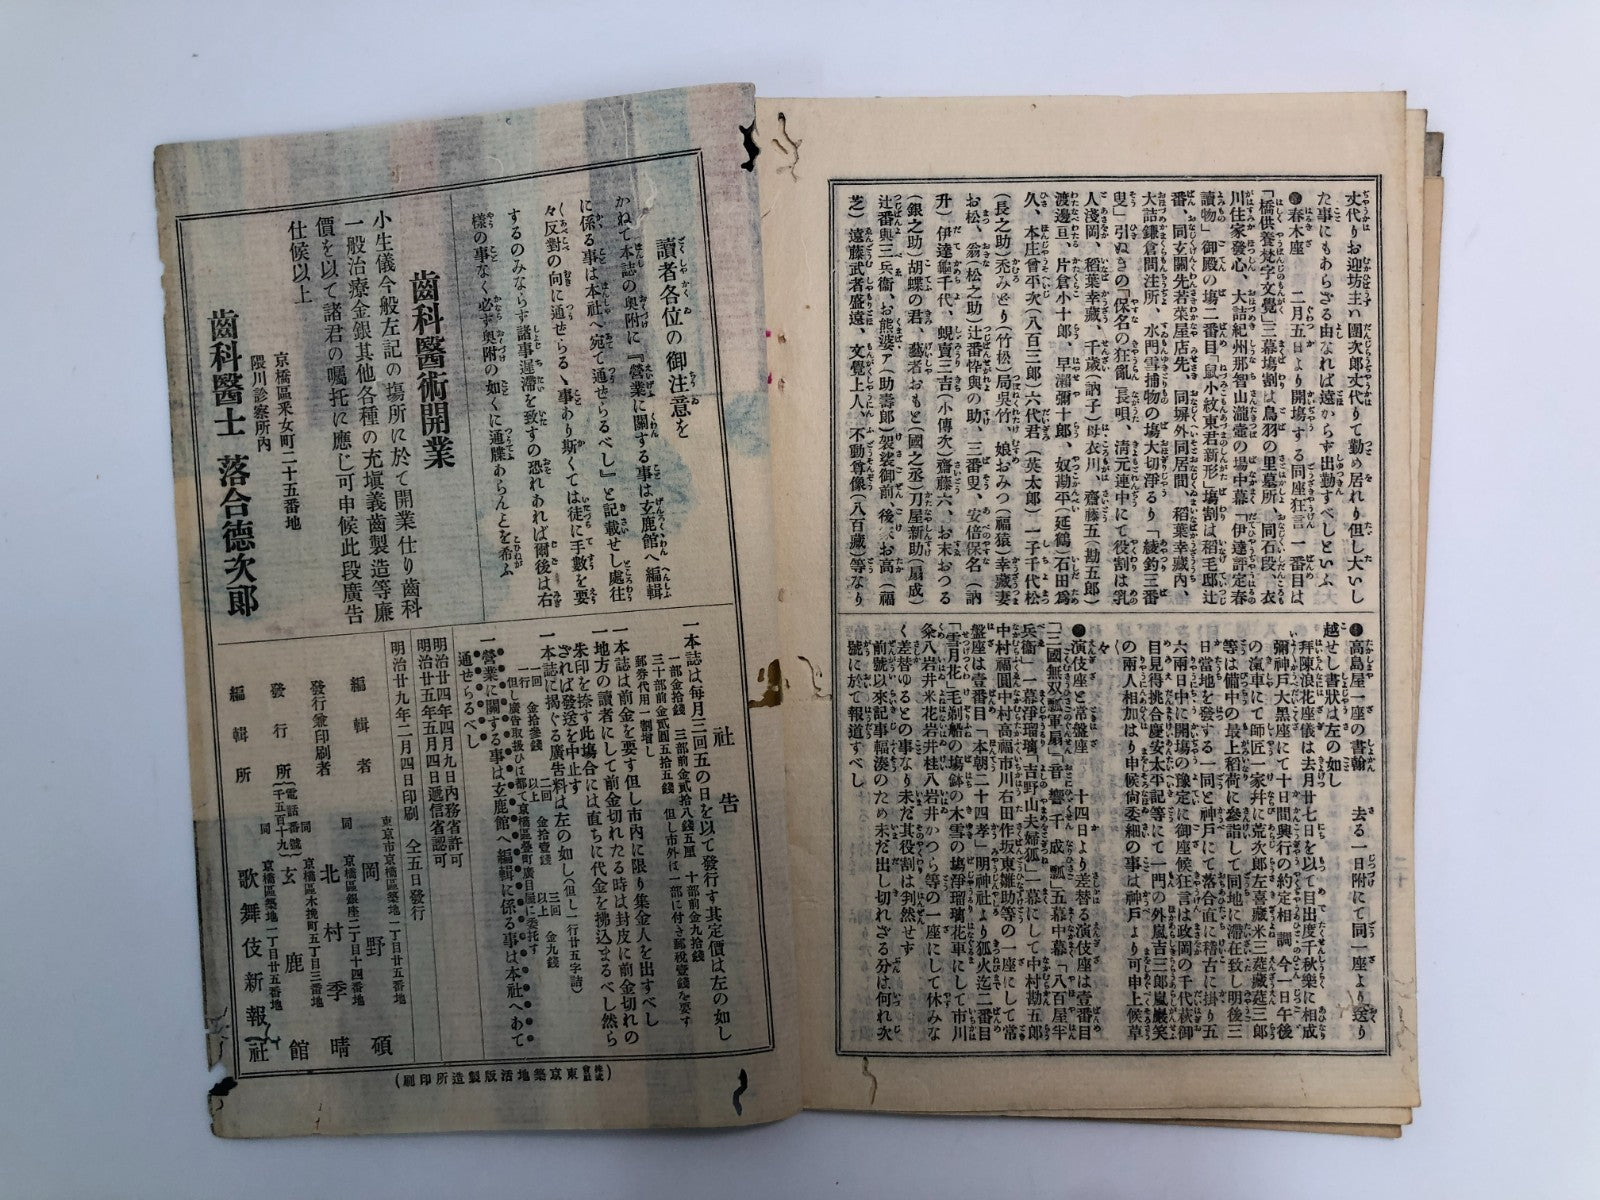 丈代りお迎坊主ハ團次郎丈代りて勤め居れり但し大いし
た事にもあらざる由なれば遠からず出勤すべしといふ
●春木座　二月五日より開塲する同座狂言一番目は
「橋供養梵字文覺」三幕塲割は鳥羽の里墓所、同石段、衣
川住家發心、大詰紀州那智山瀧壺の場中幕「伊達評定春
讀物」御殿の塲二番目「鼠小紋東君新形」塲割は稻毛邸辻
番、同玄關先若菜屋店先、同塀外同居間、稻葉幸藏內、
大詰鎌倉問注所、水門雪捕物の塲大切淨るり「綾釣三番
叟」引ぬきの「保名の狂亂」長唄、淸元連中にて役割は乳
人淺岡、稻葉幸藏、千歲(訥子)母衣川、齋藤五(勘五郎)
渡邊亘、片倉小十郎、早瀨彌十郎、奴勘平(延鶴)石田爲
久、本庄曾平次(八百三郎)六代君(英太郎)一子千代松
(長之助)禿みどり(竹松)局吳竹、娘おみつ(福猿)幸藏妻
お松、翁(松之助)辻番悴與の助、三番叟、安倍保名(訥
升)伊達龜千代、蜆賣三吉(小傳次)齋藤六、お末おつる
(銀之助)胡蝶の君、藝者おもと(國之丞)刀屋新助(扇成)
辻番與三兵衞、お熊婆ア(助壽郎)袈裟御前後家お高(福
芝)遠藤武者盛遠、文覺上人、不動尊像(八百藏)等なり
●高島屋一座の書翰　去る一日附にて同一座より送り
越せし書狀は左の如し
拜陳浪花座儀は去月廿七日を以て目出度千秋樂に相成
彌神戶大黑座にて十日間興行の約定相調今一日午後
の滊車にて師匠一家幷に荒次郎左喜藏米三莚藏莚三郎
等は備中の最上稻荷に參詣して同地に滯在致し明後三
日當地を發する一同と神戶にて落合直に稽古に掛り五
六兩日中に開塲の豫定に御座候狂言は政岡の千代萩御
目見得挑合慶安太平記等にて一門の外嵐吉三郎嵐巖笑
の兩人相加はり申候尙委細の事は神戶より可申上候草
々
●演伎座と常盤座　十四日より差替る演伎座は壹番目
「三國無双瓢軍扇」「音響千成瓢」五幕中幕「八百屋半
兵衞」一幕淨瑠璃「吉野山夫婦狐」一幕にして中村勘五郎
中村福圓中村高福市川石田作坂東雛助等の一座にして常
盤座は壹番目「本朝二十四孝」明神社より狐火迄二番目
「雪月花」毛剃船の塲鉢の木雪の塲淨瑠璃花車にして市川
粂八岩井米花岩井桂八岩井かつら等の一座にして休みな
く差替ゆるとの事なり未だ其役割は判然せず
前號以來記事輻湊のため未だ出し切れざる分は何れ次
號に於て報道すべし
二十
讀者各位の御注意を
かねて本誌の奥附に『營業に關する事は玄鹿館へ編輯
に係る事は本社へ宛て通せらるべし』と記載せし處往
々反對の向に通せらるゝ事あり斯くては徒に手數を要
するのみならず諸事遲滯を致すの恐れあれば爾後は右
樣の事なく必ず奥附の如くに通牒あらんとを希ふ
齒科醫術開業
小生儀今般左記の塲所に於て開業仕り齒科
一般治療金銀其他各種の充塡義齒製造等廉
價を以て諸君の囑托に應じ可申候此段廣告
仕候以上
京橋區釆女町二十五番地
隈川診察所內
齒科醫士　落合德次郎
社告
一本誌は每月三回五の日を以て發行す其定價は左の如し
一部金拾錢　三部前金貳拾八錢五厘　十部前金九拾錢
三十部前金貳圓五拾五錢　但し市外は一部に付き郵稅壹錢を要す
郵券代用一割增し
一本誌は前金を要す但し市內に限り集金人を出すべし
一地方の讀者にして前金切れたる時は封皮に前金切れの
朱印を捺す此塲合には直ちに代金を拂込まるべし然ら
ざれば發送を中止す
一本誌に揭ぐる廣告料は左の如し(但し一行廿五字詰)
一回一行　金拾參錢　二回以上　金拾壹錢　三回以上　金九錢
但し廣告取扱ひは都て京橋區疊町廣目屋に委托す
一營業に關する事は玄鹿館へ編輯に係る事は本社へあて
通せらるべし
明治廿四年四月九日內務省許可
明治廿五年五月四日遞信省認可
明治廿九年二月四日印刷　仝五日發行
東京市京橋區築地一丁目廿五番地
編輯者　岡野碩
同　京橋區銀座二丁目十四番地
發行兼印刷者　北村季晴
同　京橋區木挽町五丁目三番地
發行所(電話番號二千五百十九)玄鹿館
同　京橋區築地一丁目廿五番地
編輯所　歌舞伎新報社
(株式會社東京築地活版製造所印刷)